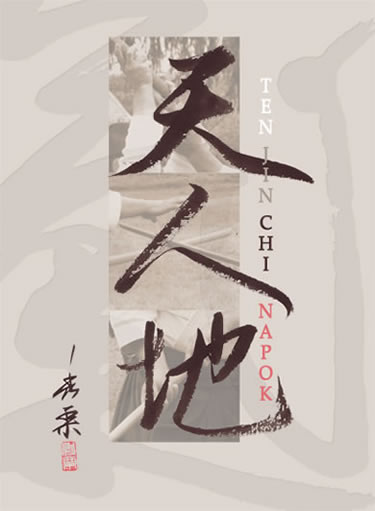 天人地
TEN JIN CHI NAPOK